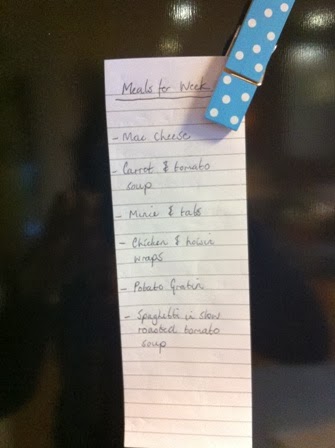 Meals for Week
- Mac Cheese
- Carrot & tomato
soup
- Mince & tats
- Chicken & hoisin
wraps
- Potato Gratin
- Spaghetti in slow
roasted tomato
soup